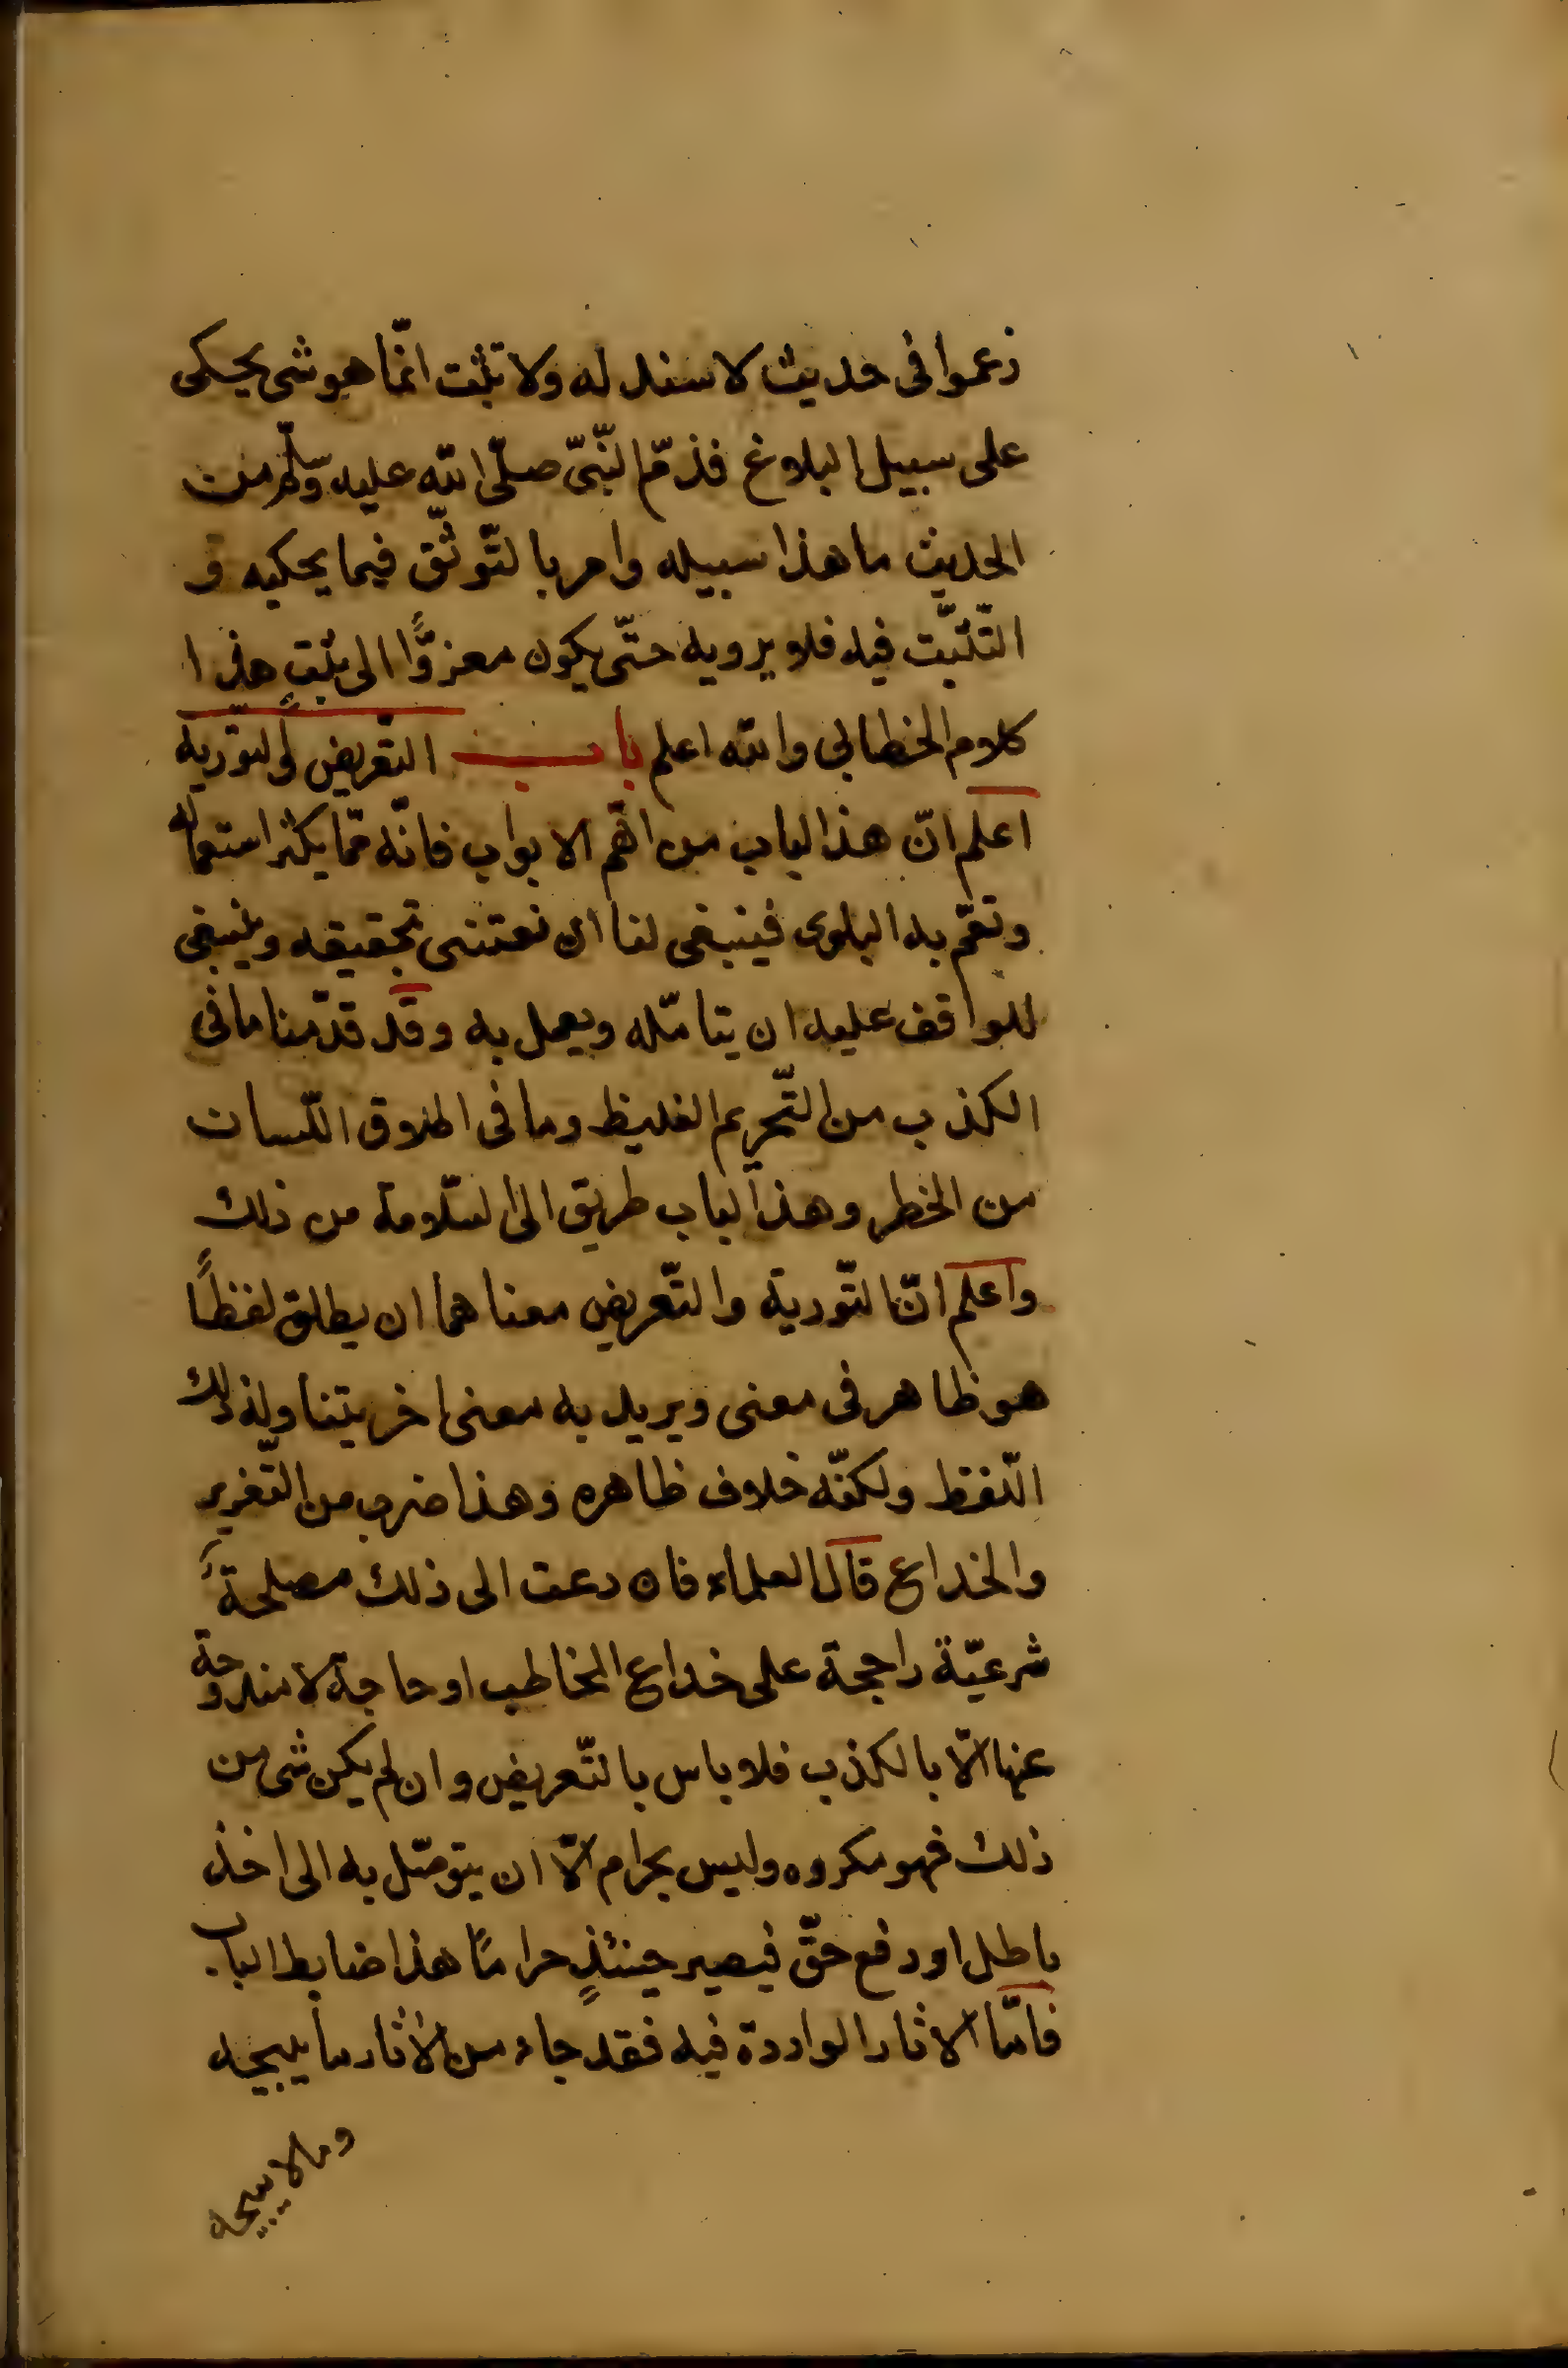 زعموا فى حديث لا سند له ولا تثبت انّما هو شى يحكى
على سبيل البلاغ فذمّ النّبىّ صلّى الله عليه وسلّم من
الحديث ما هذا سبيله وامر بالتّوثّق فيما يحكيه و
التّثبّت فيه فلا يرويه حتّى يكون معزوًّا الى ثبتٍ هذا
كلام الخطابى والله اعلم باب التّعريض والتّورية
اعلم انّ هذا الباب من اهمّ الابواب فانّه ممّا يكثر استعماله
وتعمّ به البلوى فينبغى لنا ان نعتنى بتحقيقه وينبغى
للواقف عليه ان يتامّله ويعمل به وقد قدّمنا ما فى
الكذب من التّحريم الغليظ وما فى اطلاق اللّسان
من الخطر وهذا الباب طريق الى السّلامة من ذلك
واعلم انّ التّورية والتّعريض معناهما ان يطلق لفظًا
هو ظاهر فى معنى ويريد به معنى اخر يتناوله ذلك
اللّفظ ولكنّه خلاف ظاهره وهذا ضرب من التّغرير
والخداع قال العلماء فان دعت الى ذلك مصلحةٌ
شرعيّة راجحة على خداع المخاطب او حاجة لا مندوحة
عنها الّا بالكذب فلا باس بالتّعريض وان لم يكن شى من
ذلك فهو مكروه وليس بحرام الّا ان يتوصّل به الى اخذ
باطل او دفع حقّ فيصير حينئذٍ حرامًا هذا ضابط الباب
فامّا الاثار الواردة فيه فقد جاء من الاثار ما يبيحه
وما لا يبيحه